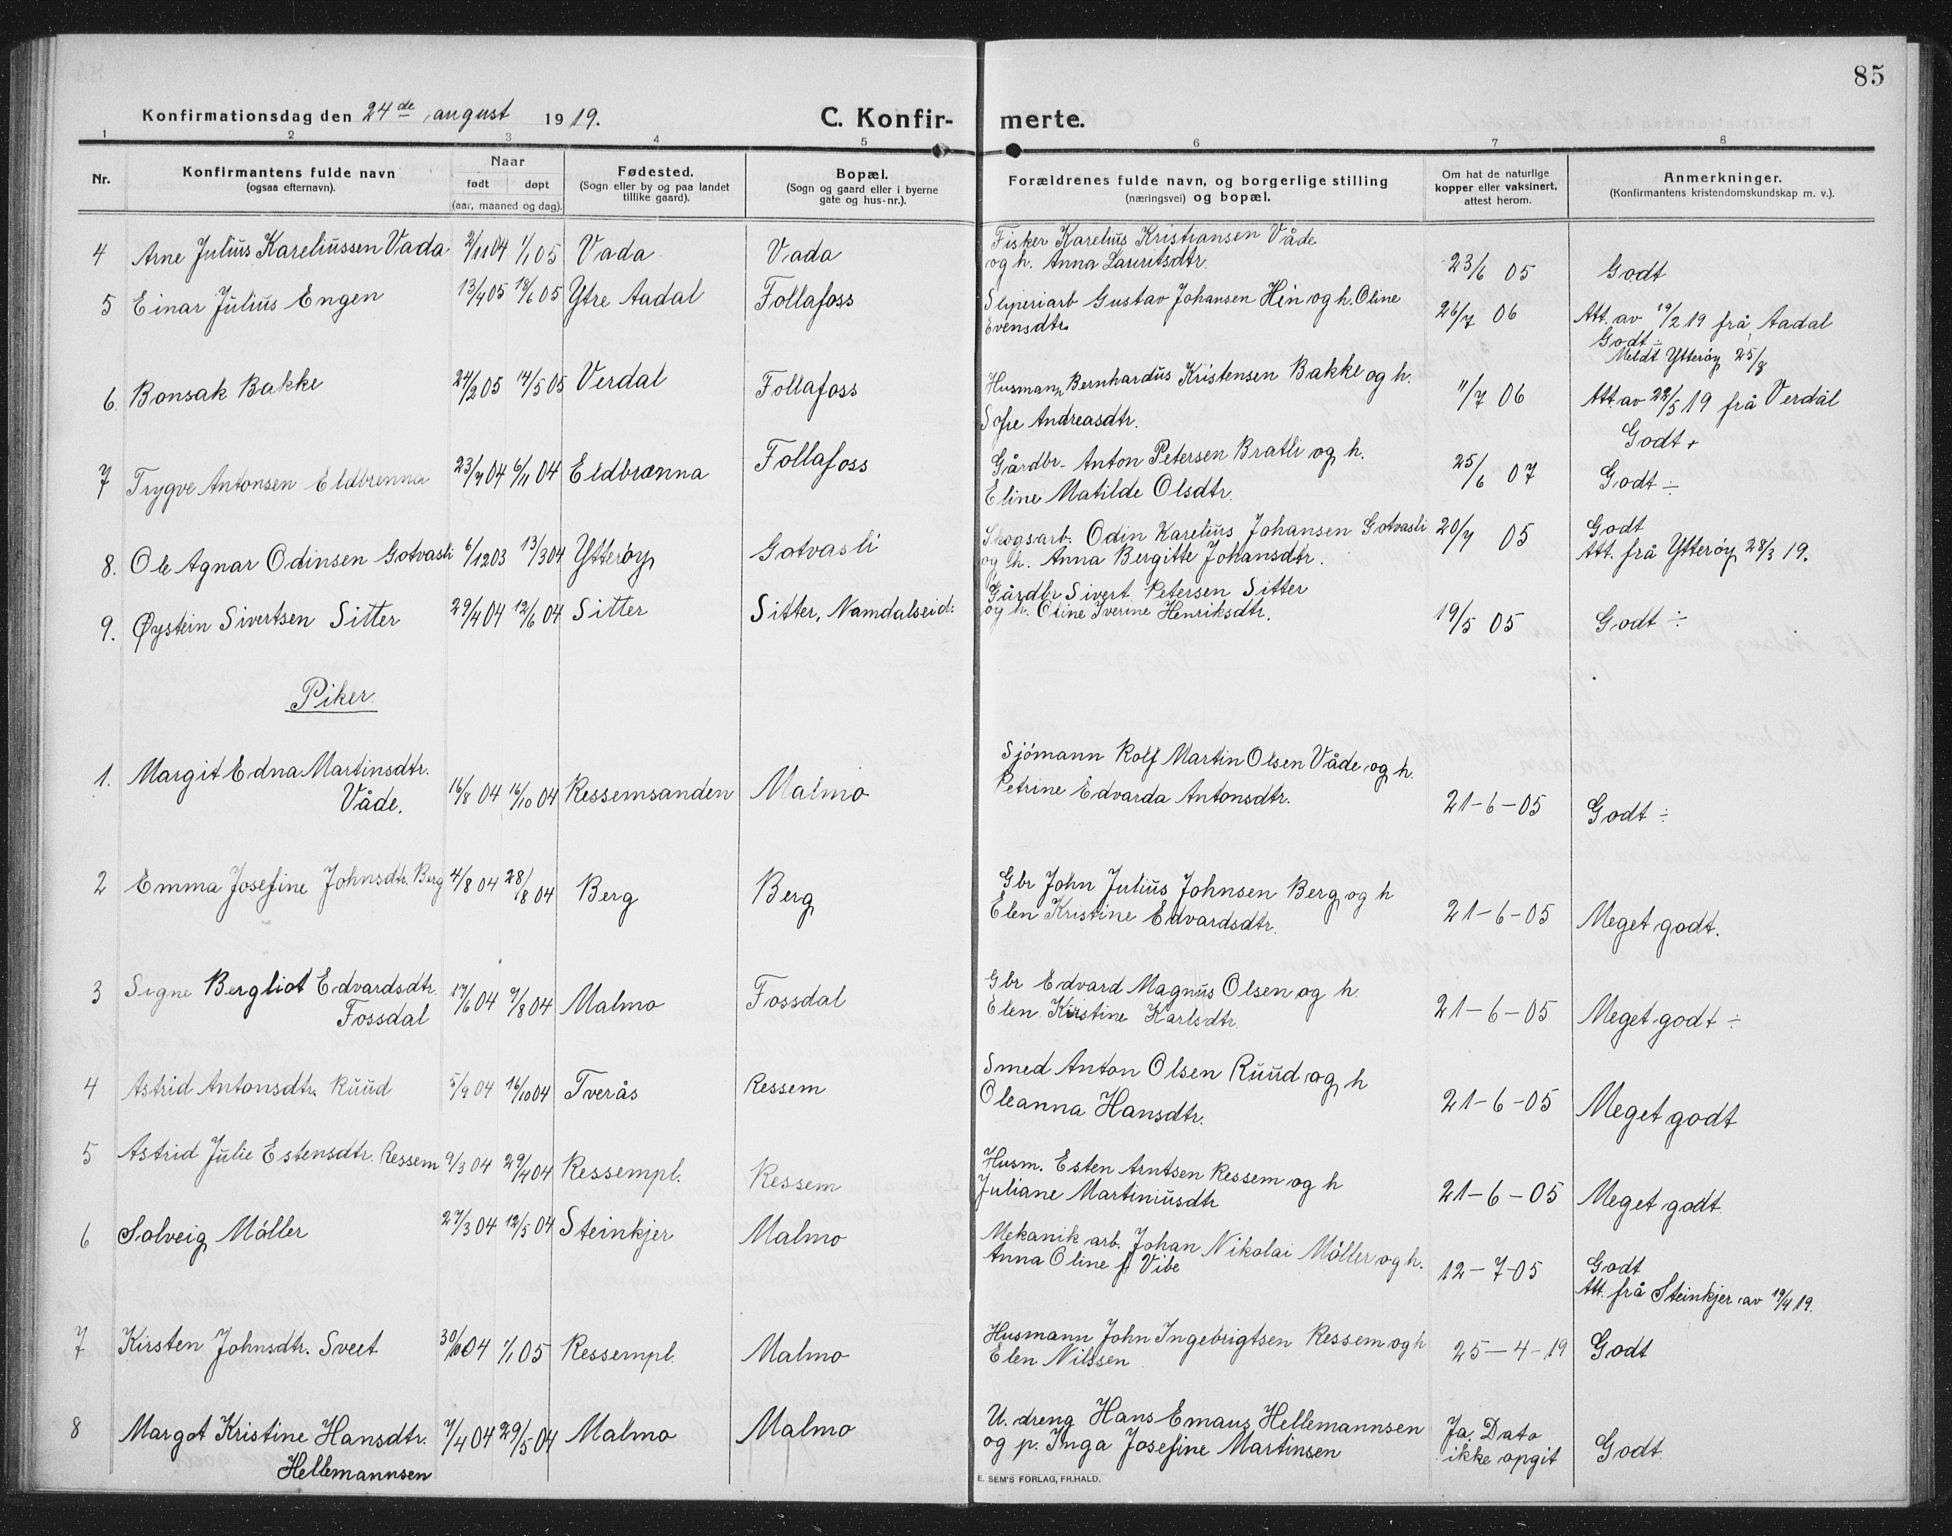 85
Konfirmationsdag den 24de august 1919. C. Konfir- merte.
1 2 3 4 5 6 7 8
Nr. Konfirmantens fulde navn (ogsaa efternavn). Naar født døpt (aar, maaned og dag). Fødested. (Sogn eller by og paa landet tillike gaard). Bopæl. (Sogn og gaard eller i byerne gate og hus-nr.). Forældrenes fulde navn, og borgerlige stilling (næringsvei) og bopæl. Om hat de naturlige kopper eller vaksinert, attest herom. Anmerkninger. (Konfirmantens kristendomskundskap m. v.).
4 Arne Julius Kareliussen Vada 2/11 04 1/1 05 Vada Vada Fisker Karelius Kristiansen Våde
og h. Anna Lauritsdtr. 23/6 05 Godt
5 Einar Julius Engen 13/4 05 18/6 05 Ytre Aadal Follafoss Sliperiarb Gustav Johansen Hin og h. Oline
Evensdtr. 26/7 06 Att. av 19/2 19 frå Aadal
Godt ÷
Meldt Ytterøy 25/8
6. Bonsak Bakke 24/2 05 14/5 05 Verdal Follafoss Husmann Bernhardus Kristensen Bakke og h.
Sofie Andreasdtr. 11/7 06 Att. av 22/5 19 frå Verdal
Godt +
7 Trygve Antonsen Eldbrenna 23/7 04 6/11 04 Eldbrænna Follafoss Gårdbr. Anton Petersen Bratli og h.
Eline Matilde Olsdtr. 25/6 07 Godt ÷
8. Ole Agnar Odinsen Gotvasli 6/12 03 13/3 04 Ytterøy Gotvasli Skogsarb. Odin Karelius Johansen Gotvasli
og h. Anna Bergitte Johansdtr. 20/7 05 Godt
Att. frå Ytterøy 28/3 19.
9. Øystein Sivertsen Sitter 29/4 04 12/6 04 Sitter Sitter, Namdalseid: Gårdbr Sivert Petersen Sitter
og h. Oline Iverine Henriksdtr. 19/5 05 Godt ÷
Piker
1. Margit Edna Martinsdtr.
Våde. 16/8 04 16/10 04 Ressemsanden Malmo Sjómann Rolf Martin Olsen Våde og h.
Petrine Edvarda Antonsdtr. 21-6-05 Godt ÷
2 Emma Josefine Johnsdtr. Berg 4/8 04 28/8 04 Berg Berg Gbr John Julius Johnsen Berg og h
Elen Kristine Edvardsdtr. 21-6-05 Meget godt.
3 Signe Bergliot Edvardsdtr.
Fossdal 17/6 04 7/8 04 Malmo Fossdal Gbr Edvard Magnus Olsen og h.
Elen Kirstine Karlsdtr 21-6-05 Meget godt ÷
4 Astrid Antonsdtr. Ruud 5/9 04 16/10 04 Tverås Ressem Smed Anton Olsen Ruud og h
Oleanna Hansdtr. 21-6-05 Meget godt
5 Astrid Julie Estensdtr. Ressem 9/3 04 29/4 04 Ressempl. Ressem Husm. Esten Arntsen Ressem og h
Juliane Martiniusdtr 21-6-05 Meget godt
6 Solveig Móller 27/3 04 12/5 04 Steinkjer Malmo Mekanik arb. Johan Nikolai Móller og h.
Anna Oline f. Vibe 12-7-05 Godt
Att. frå Steinkjer av 19/4 19.
7 Kirsten Johnsdtr. Sveet 30/10 04 1/1 05 Ressempl. Malmo Husmann John Ingebrigtsen Ressem og h
Elen Nilssen 25-4-19 Godt
8 Margot Kristine Hansdtr.
Hellemannsen 7/4 04 29/5 04 Malmo Malmo U. dreng Hans Emaus Hellemannsen
og p. Inga Josefine Martinsen Ja. Dato
ikke opgit Godt.
E. SEM'S FORLAG, FR.HALD.